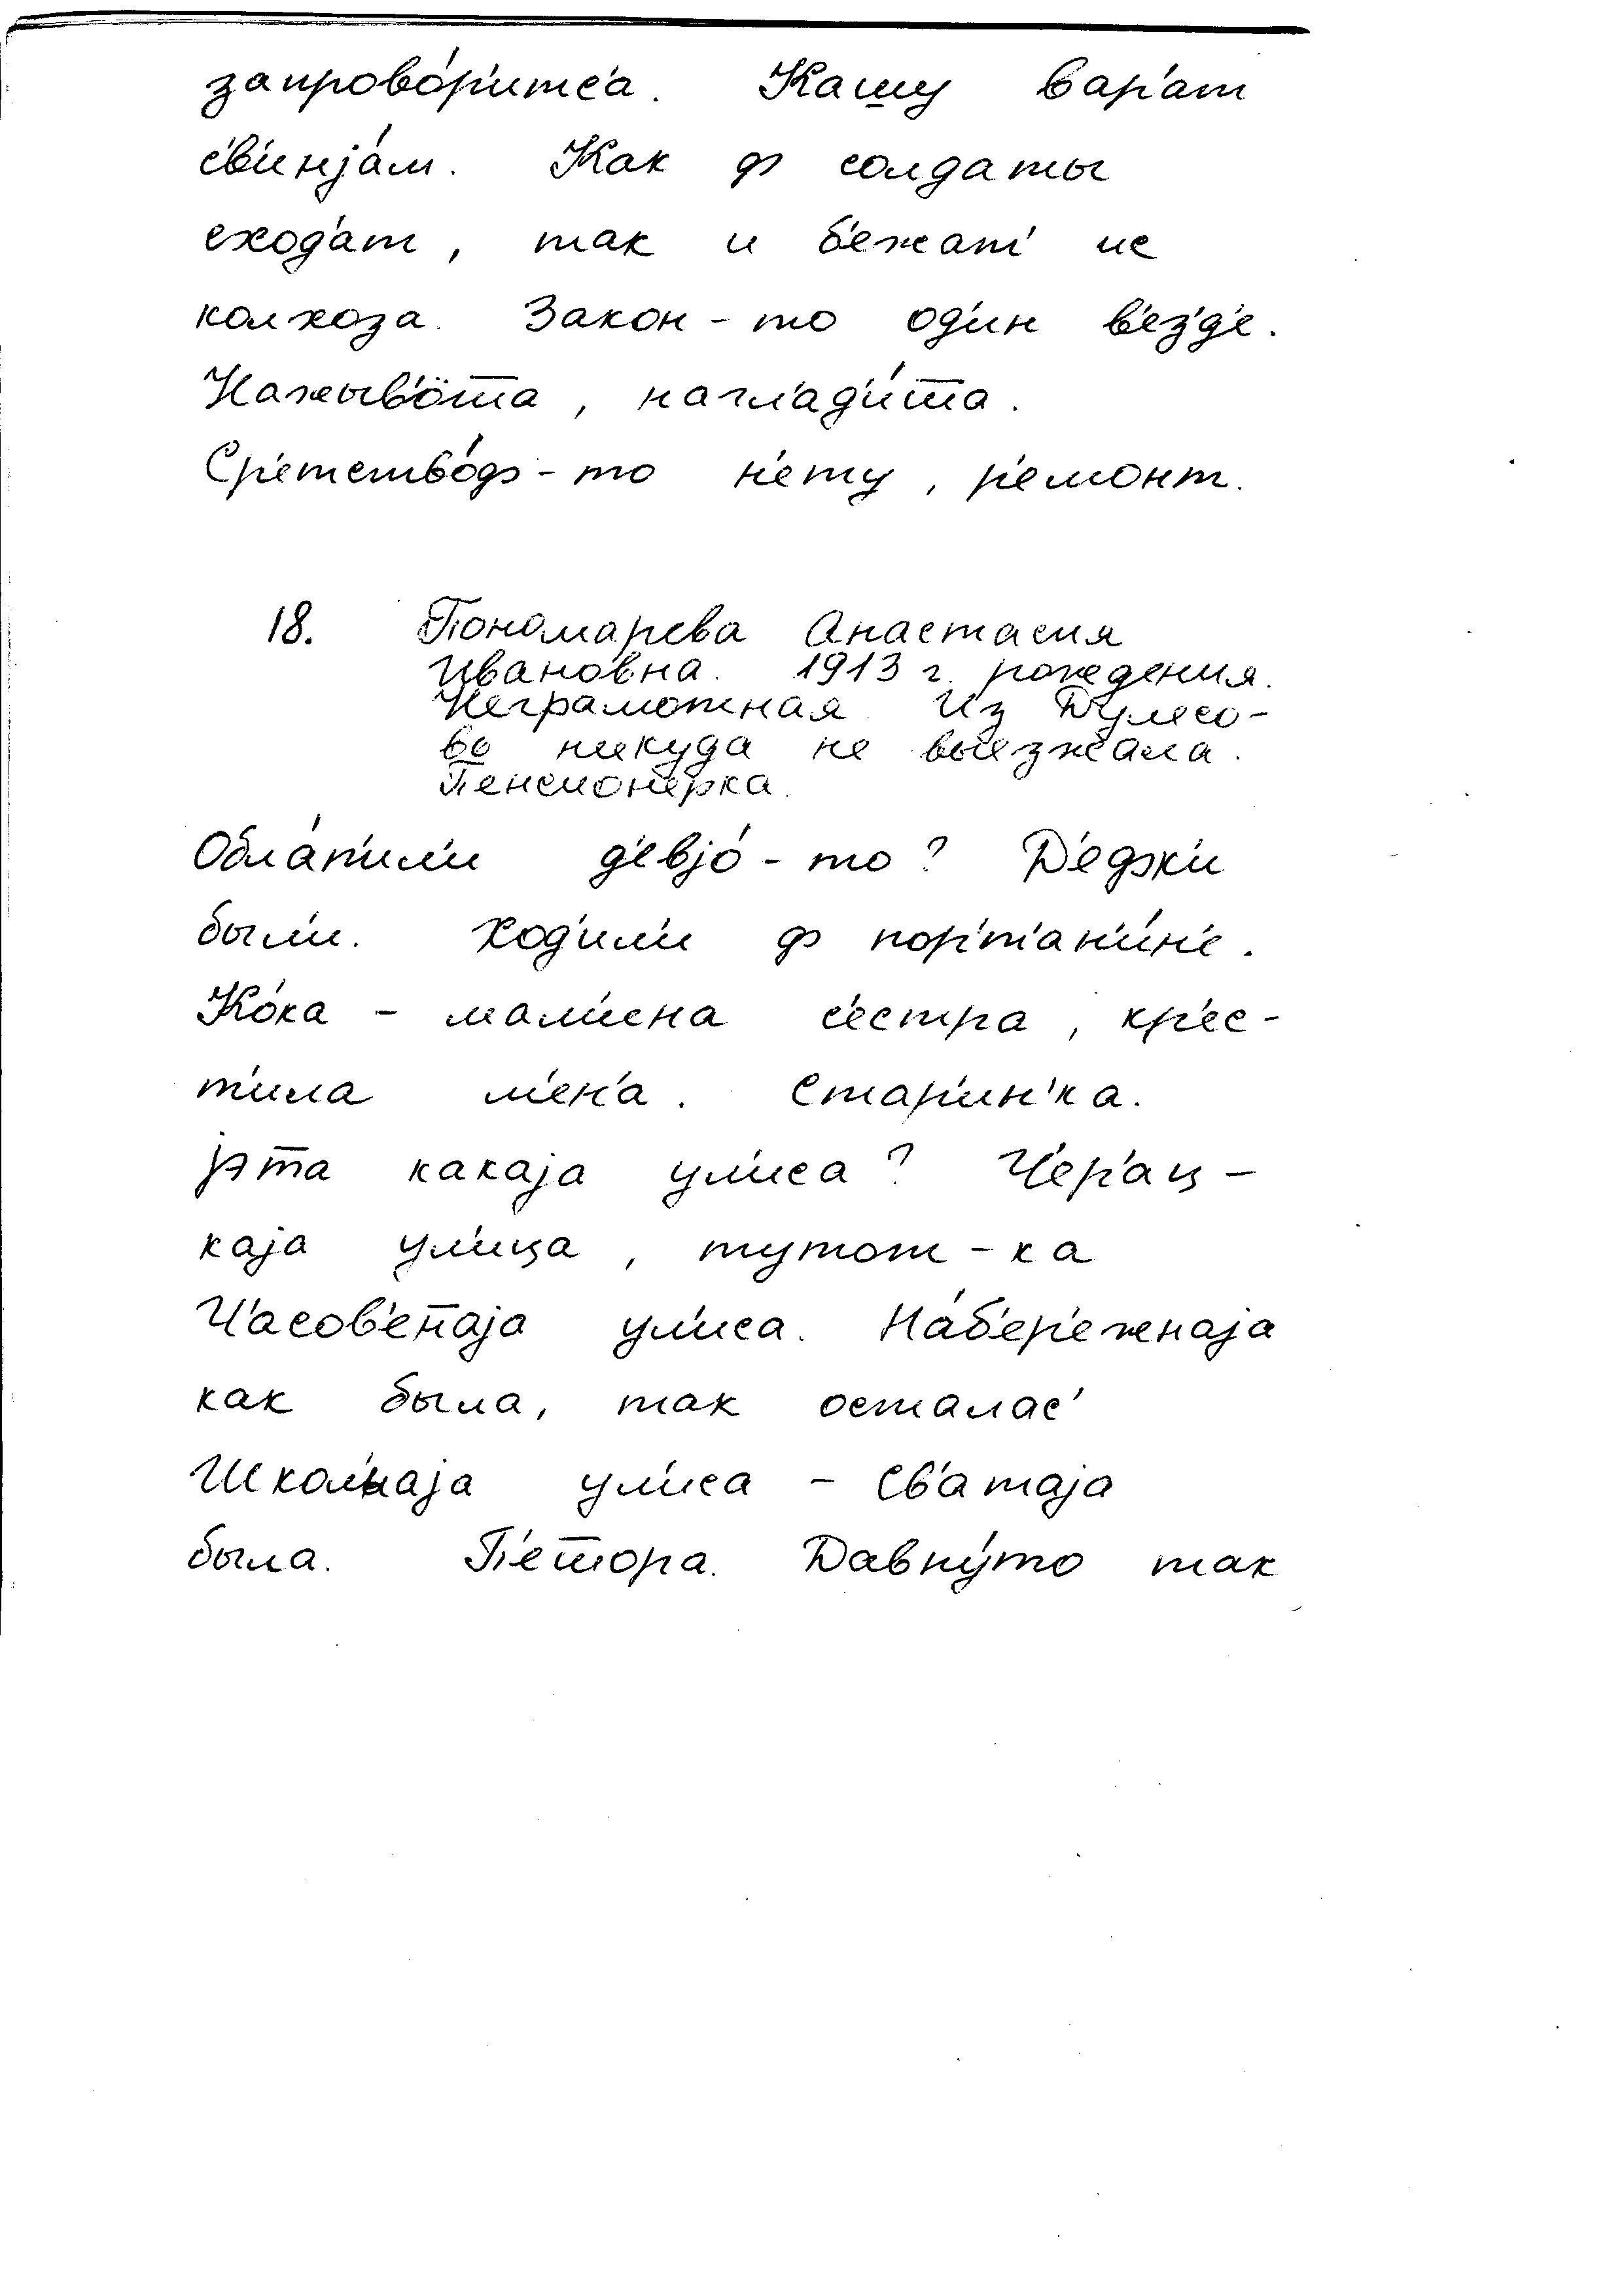 запрово́р'итс'а. Кашу вар'ат
с'в'инjа́м. Как ф солдаты
сход'ат, так и б'ежат' ис
колхоза. Закон-то од'ин в'ез'д'е.
Нажыв'ӧт̅а, нагл'ад'и́т̅а.
Ср'етствó​ф-то н'ету, р'емонт.
18. Пономарева Анастасия
Ивановна. 1913 г. рождения.
Неграмотная. Из Дулесо-
во никуда не выезжала.
Пенсионерка.
Обла́п'ил'и д'евjо́-то? Д'ефк'и
был'и. Ход'ил'и ф пор'т'ан'и́н'е.
Ко́ка - мам'ина с'естра, кр'ес-
т'ила м'ен'а. Стар'ин'ка.
jэт̅а какаjа ул'иса? Ч'ер'ац-
каjа ул'ица, тутот-ка
Ч'асов'ен̅аjа ул'иса. На́б'ер'ежнаjа
как была, так осталас'
Школ'наjа ул'иса - Св'атаjа
была. П'ет̅ора. Давну́то так